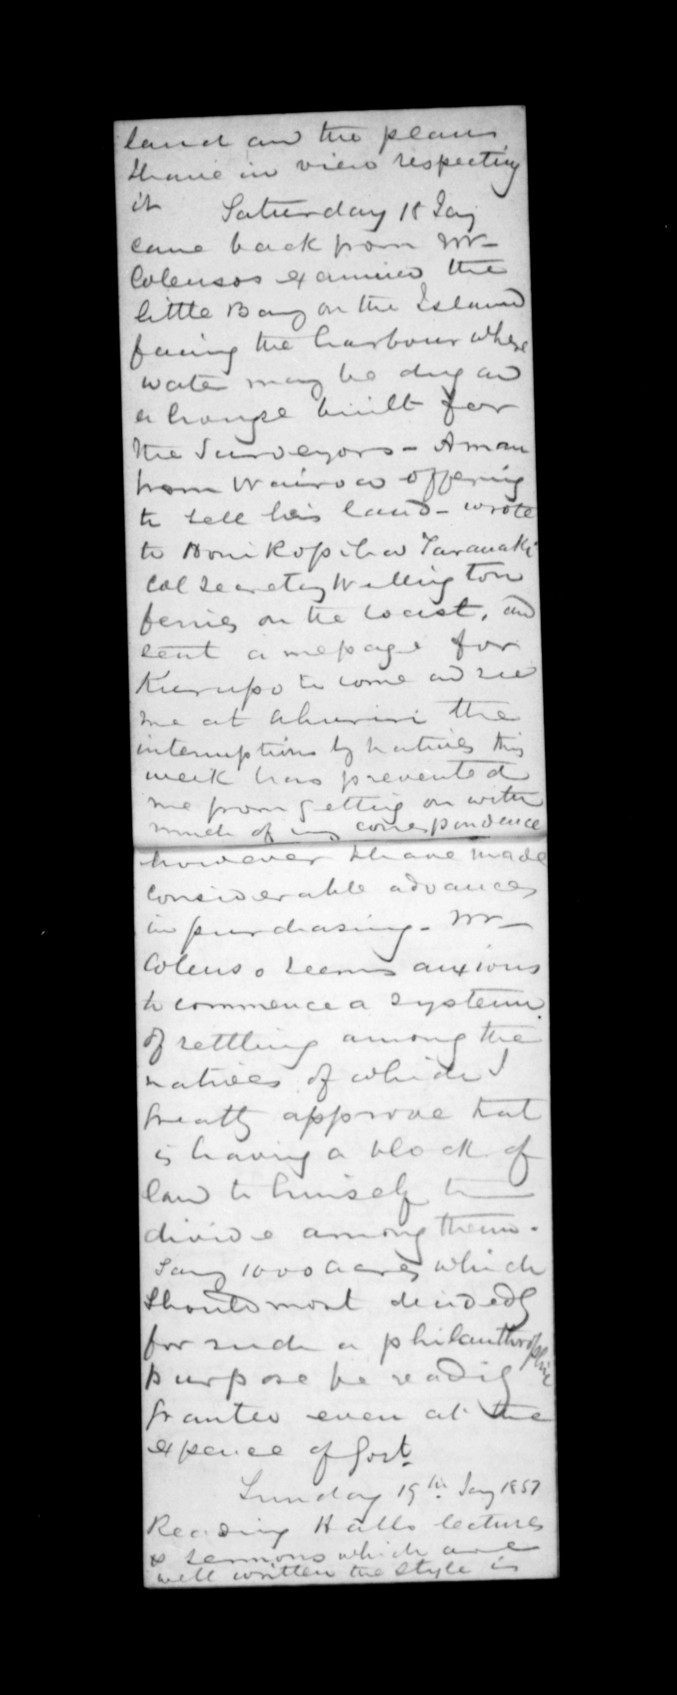 land and the plans
I have in view respecting
it Saturday 18 Jany
came back from Mr
Colensos examined the
little Bay on the Island
facing the harbour where
water may be dug and
a house built for
the Surveyors - A man
from Wairoa offering
to sell his land - wrote
to Honi Ropiha Taranaki
Col Secretary Wellington
ferries on the Coast, and
sent a message for
Kurupo to come and see
me at Ahuriri the
interruptions by natives this
week has prevented
me from getting on with
much of my correspondence
however I have made
considerable advances
in purchasing. Mr
Colenso seems anxious
to commence a system
of settling among the
natives of which I
greatly approve that
is having a block of
land to himself to
divide among them.
Say 1000 acres which
should most decidedly
for such a philanthrophic
purpose be readily
granted even at the
expence of Govt.
Sunday 19th Jany 1851
Reading Halls lectures
& sermons which are
well written the style is